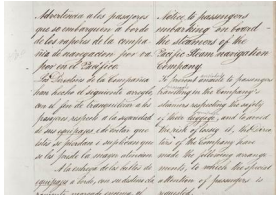 Advertencia a los pasajeros
que se embarquen a bordo
de los vapores de la compa
ñia de navegacion por va
por en el Pacifico.
Los Directores de la Compañia
han hecho el siguiente arreglo,
con el fin de tranquilizar a los
pasajeros respecto a la seguridad
de sus equipajes, i de evitar que
estos se pierdan i suplican que
se les preste la mayor atencion
A la entrega de los bultos de
equipaje a bordo, con su
Notice to passengers
embarking on board
the steamers of the
Pacific Steam navigation
Company.
To prevent to passengers
travelling in the Company's
steamers respecting the safety
of their luggage, and to avoid
the risk of losing it, the Direc
tors of the Company have
made the following arrange
ments, to which the special
attention of passengers is